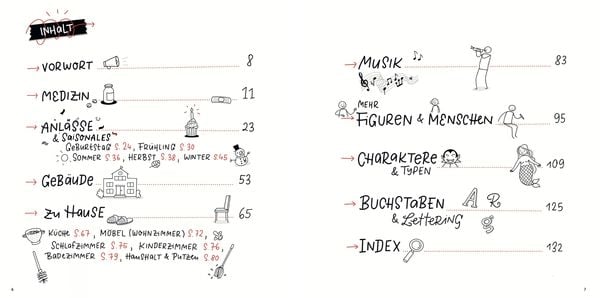 INHALT
VORWORT 8
MEDIZIN 11
ANLÄSSE 23
& SAISONALES
GEBURTSTAG S.24, FRÜHLING S.30
SOMMER S.34, HERBST S.38, WINTER S.45
GEBÄUDE 53
ZU HAUSE 65
KÜCHE S.67, MÖBEL (WOHNZIMMER) S.72,
SCHLAFZIMMER S.76, KINDERZIMMER S.76,
BADEZIMMER S.79, HAUSHALT & PUTZEN S.80
6
MUSIK 83
MEHR
FIGUREN & MENSCHEN 95
CHARAKTERE 109
& TYPEN
BUCHSTABEN A R 125
& LETTERING g
INDEX 132
7